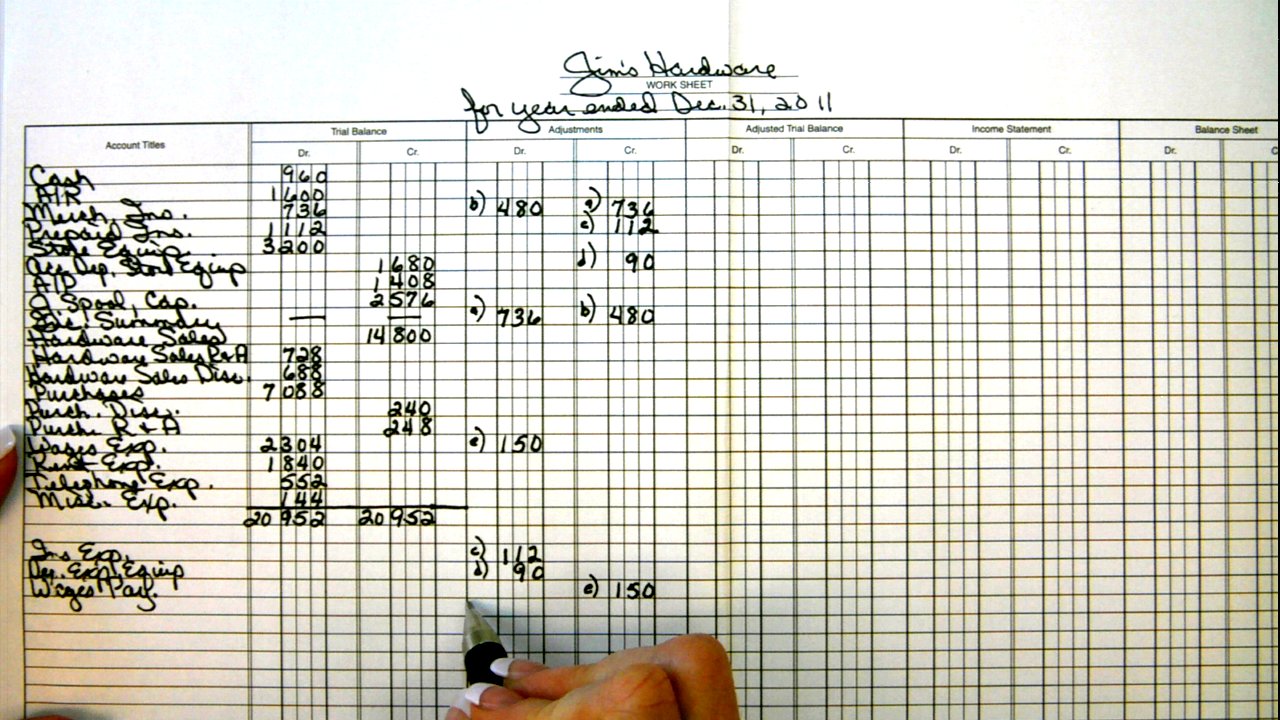 Jim's Hardware
WORK SHEET
for year ended Dec. 31, 2011
Account Titles Trial Balance Adjustments Adjusted Trial Balance Income Statement Balance Sheet
Dr. Cr. Dr. Cr. Dr. Cr. Dr. Cr. Dr. C
Cash 960
A/R 1600
Merch. Ins. 736 b) 480 a) 736
Prepaid Ins. 1112 c) 112
Store Equip. 3200
Acc. Dep. Store Equip 1680 d) 90
A/P 1408
J. Spool, Cap. 2576
Inc. Summary — — a) 736 b) 480
Hardware Sales 14800
Hardware Sales R&A 728
Hardware Sales Disc. 688
Purchases 7088
Purch. Disc. 240
Purch. R & A 248
Wages Exp. 2304 e) 150
Rent Exp. 1840
Telephone Exp. 552
Misc. Exp. 144
20952 20952
Ins Exp. c) 112
Dep. Exp. Equip d) 90
Wages Pay. e) 150